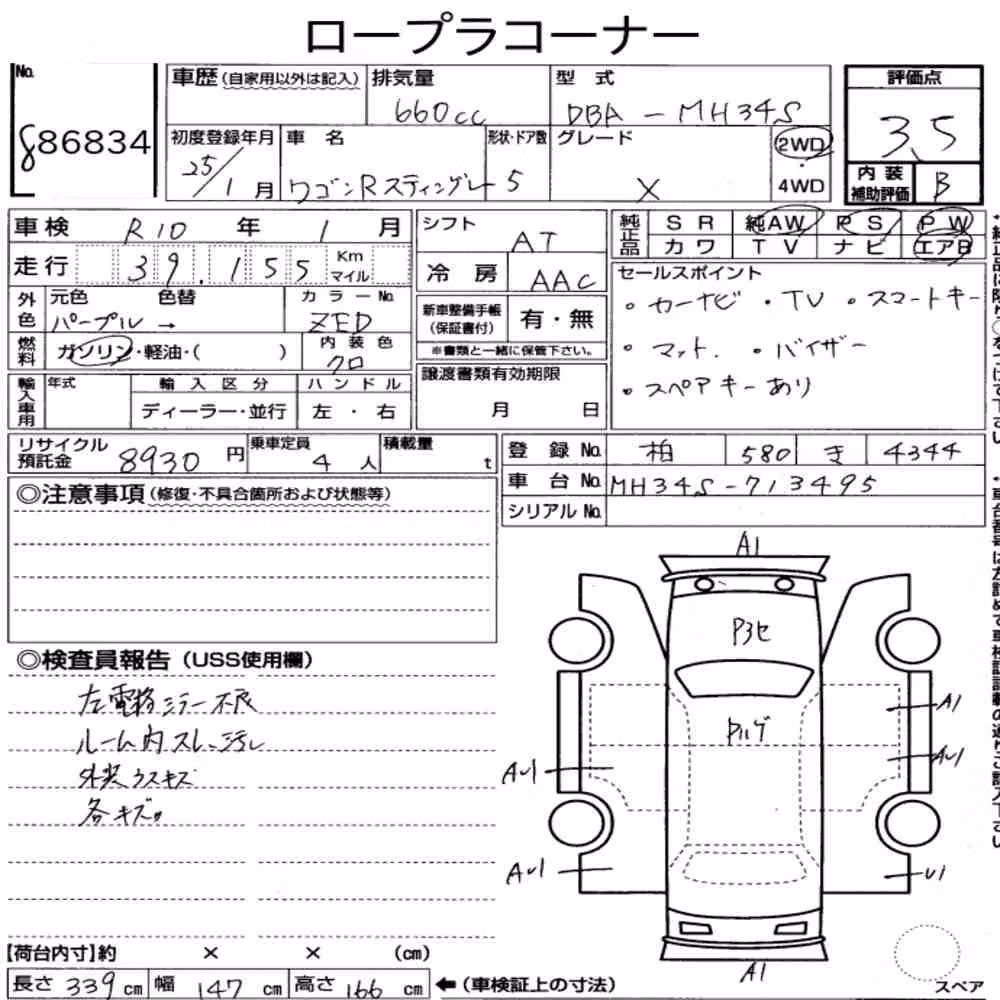 ロープラコーナー
No.
86834
車歴(自家用以外は記入)
排気量
660cc
型式
DBA-MH34S
評価点
3.5
初度登録年月
25/1月
車名
ワゴンRスティングレー
形状・ドア数
5
グレード
X
2WD
・
4WD
内装
補助評価
B
車検 R10年 1月
走行 39,155 Km
マイル
シフト
AT
冷房
AAC
純正品
SR 純AW PS PW
カワ TV ナビ エアB
外色
元色 色替
パープル→
カラーNo.
ZED
燃料
ガソリン・軽油・( )
内装色
クロ
新車整備手帳
(保証書付)
有・無
※書類と一緒に保管下さい。
セールスポイント
・カーナビ ・TV ・スマートキー
・マット. ・バイザー
・スペアキーあり
輸入車用
年式
輸入区分
ディーラー・並行
ハンドル
左・右
譲渡書類有効期限
月 日
リサイクル
預託金 8930円
乗車定員
4人
積載量
t
登録No. 柏 580 き 4344
車台No. MH34S-713495
シリアルNo.
◎注意事項(修復・不具合箇所および状態等)
◎検査員報告(USS使用欄)
左電格ミラー不良
ルーム内スレ、汚レ
外装ウスキズ
各キズ。
A1
P3セ
Pハゲ
A1
AU1
AU1
AU1
U1
A1
【荷台内寸】約 × × (cm)
長さ 339cm 幅 147cm 高さ 166cm
←(車検証上の寸法)
スペア